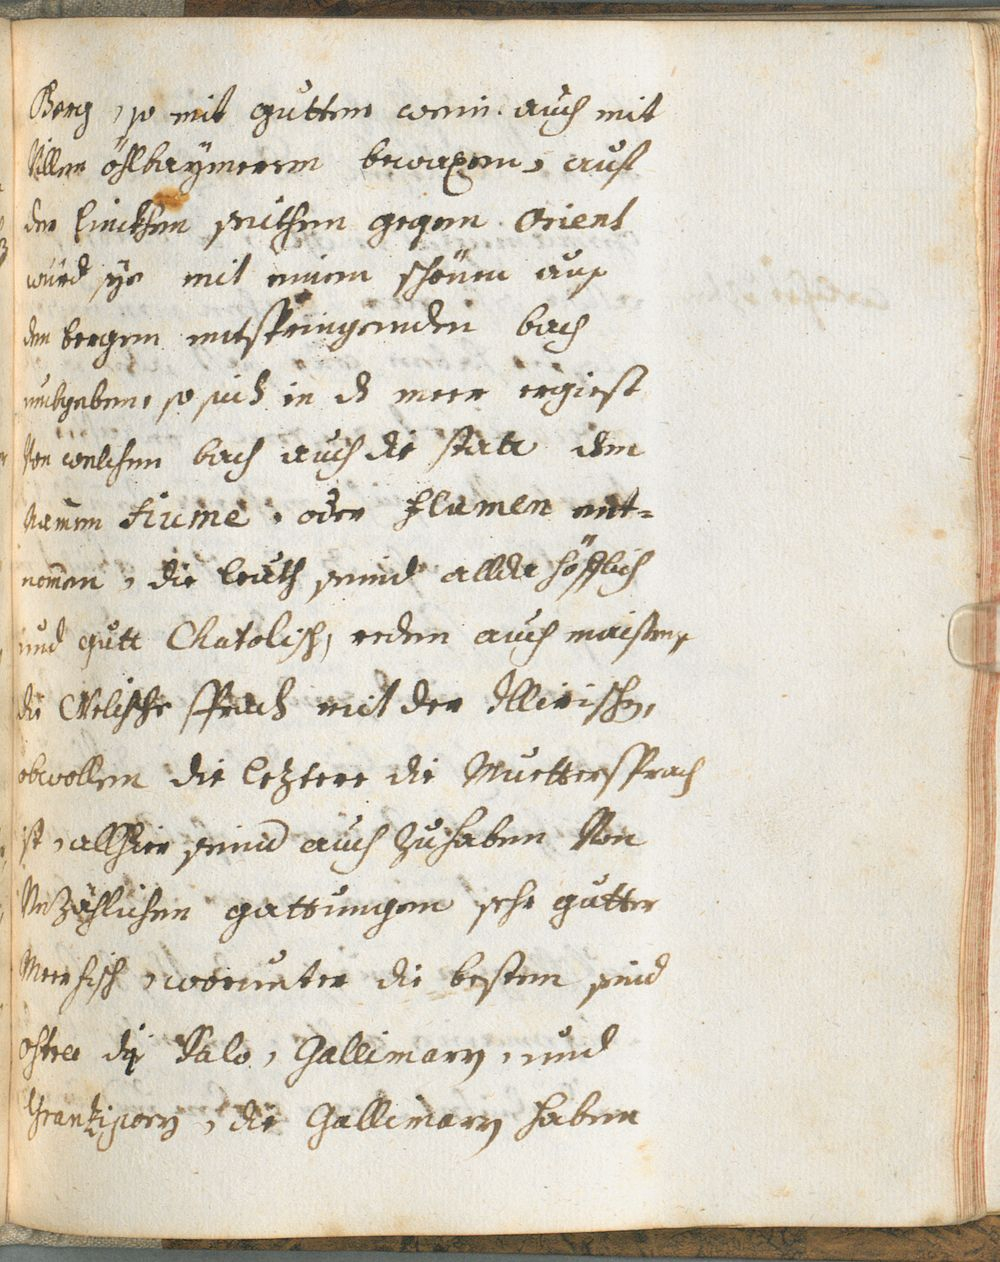 Berg, so mit gutten wein auch mit
Villen öhlbaymeren bewaxen, auf
der linckhen seithen gegen Orient
würd sye mit einem schönen auß
den bergen entspringenden bach
umbgeben, so sich in d meer ergiest
Von welchen bach auch die statt den
Namen Fiume, oder Flumen ent-
nomen, die leuth seind allda höfflich
und gutt Chatolisch, reden auch maistens
die Welische sprach mit der Illirischen,
obwollen die letztere die Muettersprach
ist, allhier seind auch zu haben Von
Vnzählichen gattungen sehr gutter
Meerfisch, worunter die besten seind
ostree di Palo, Gallimary, und
die Gallimary haben